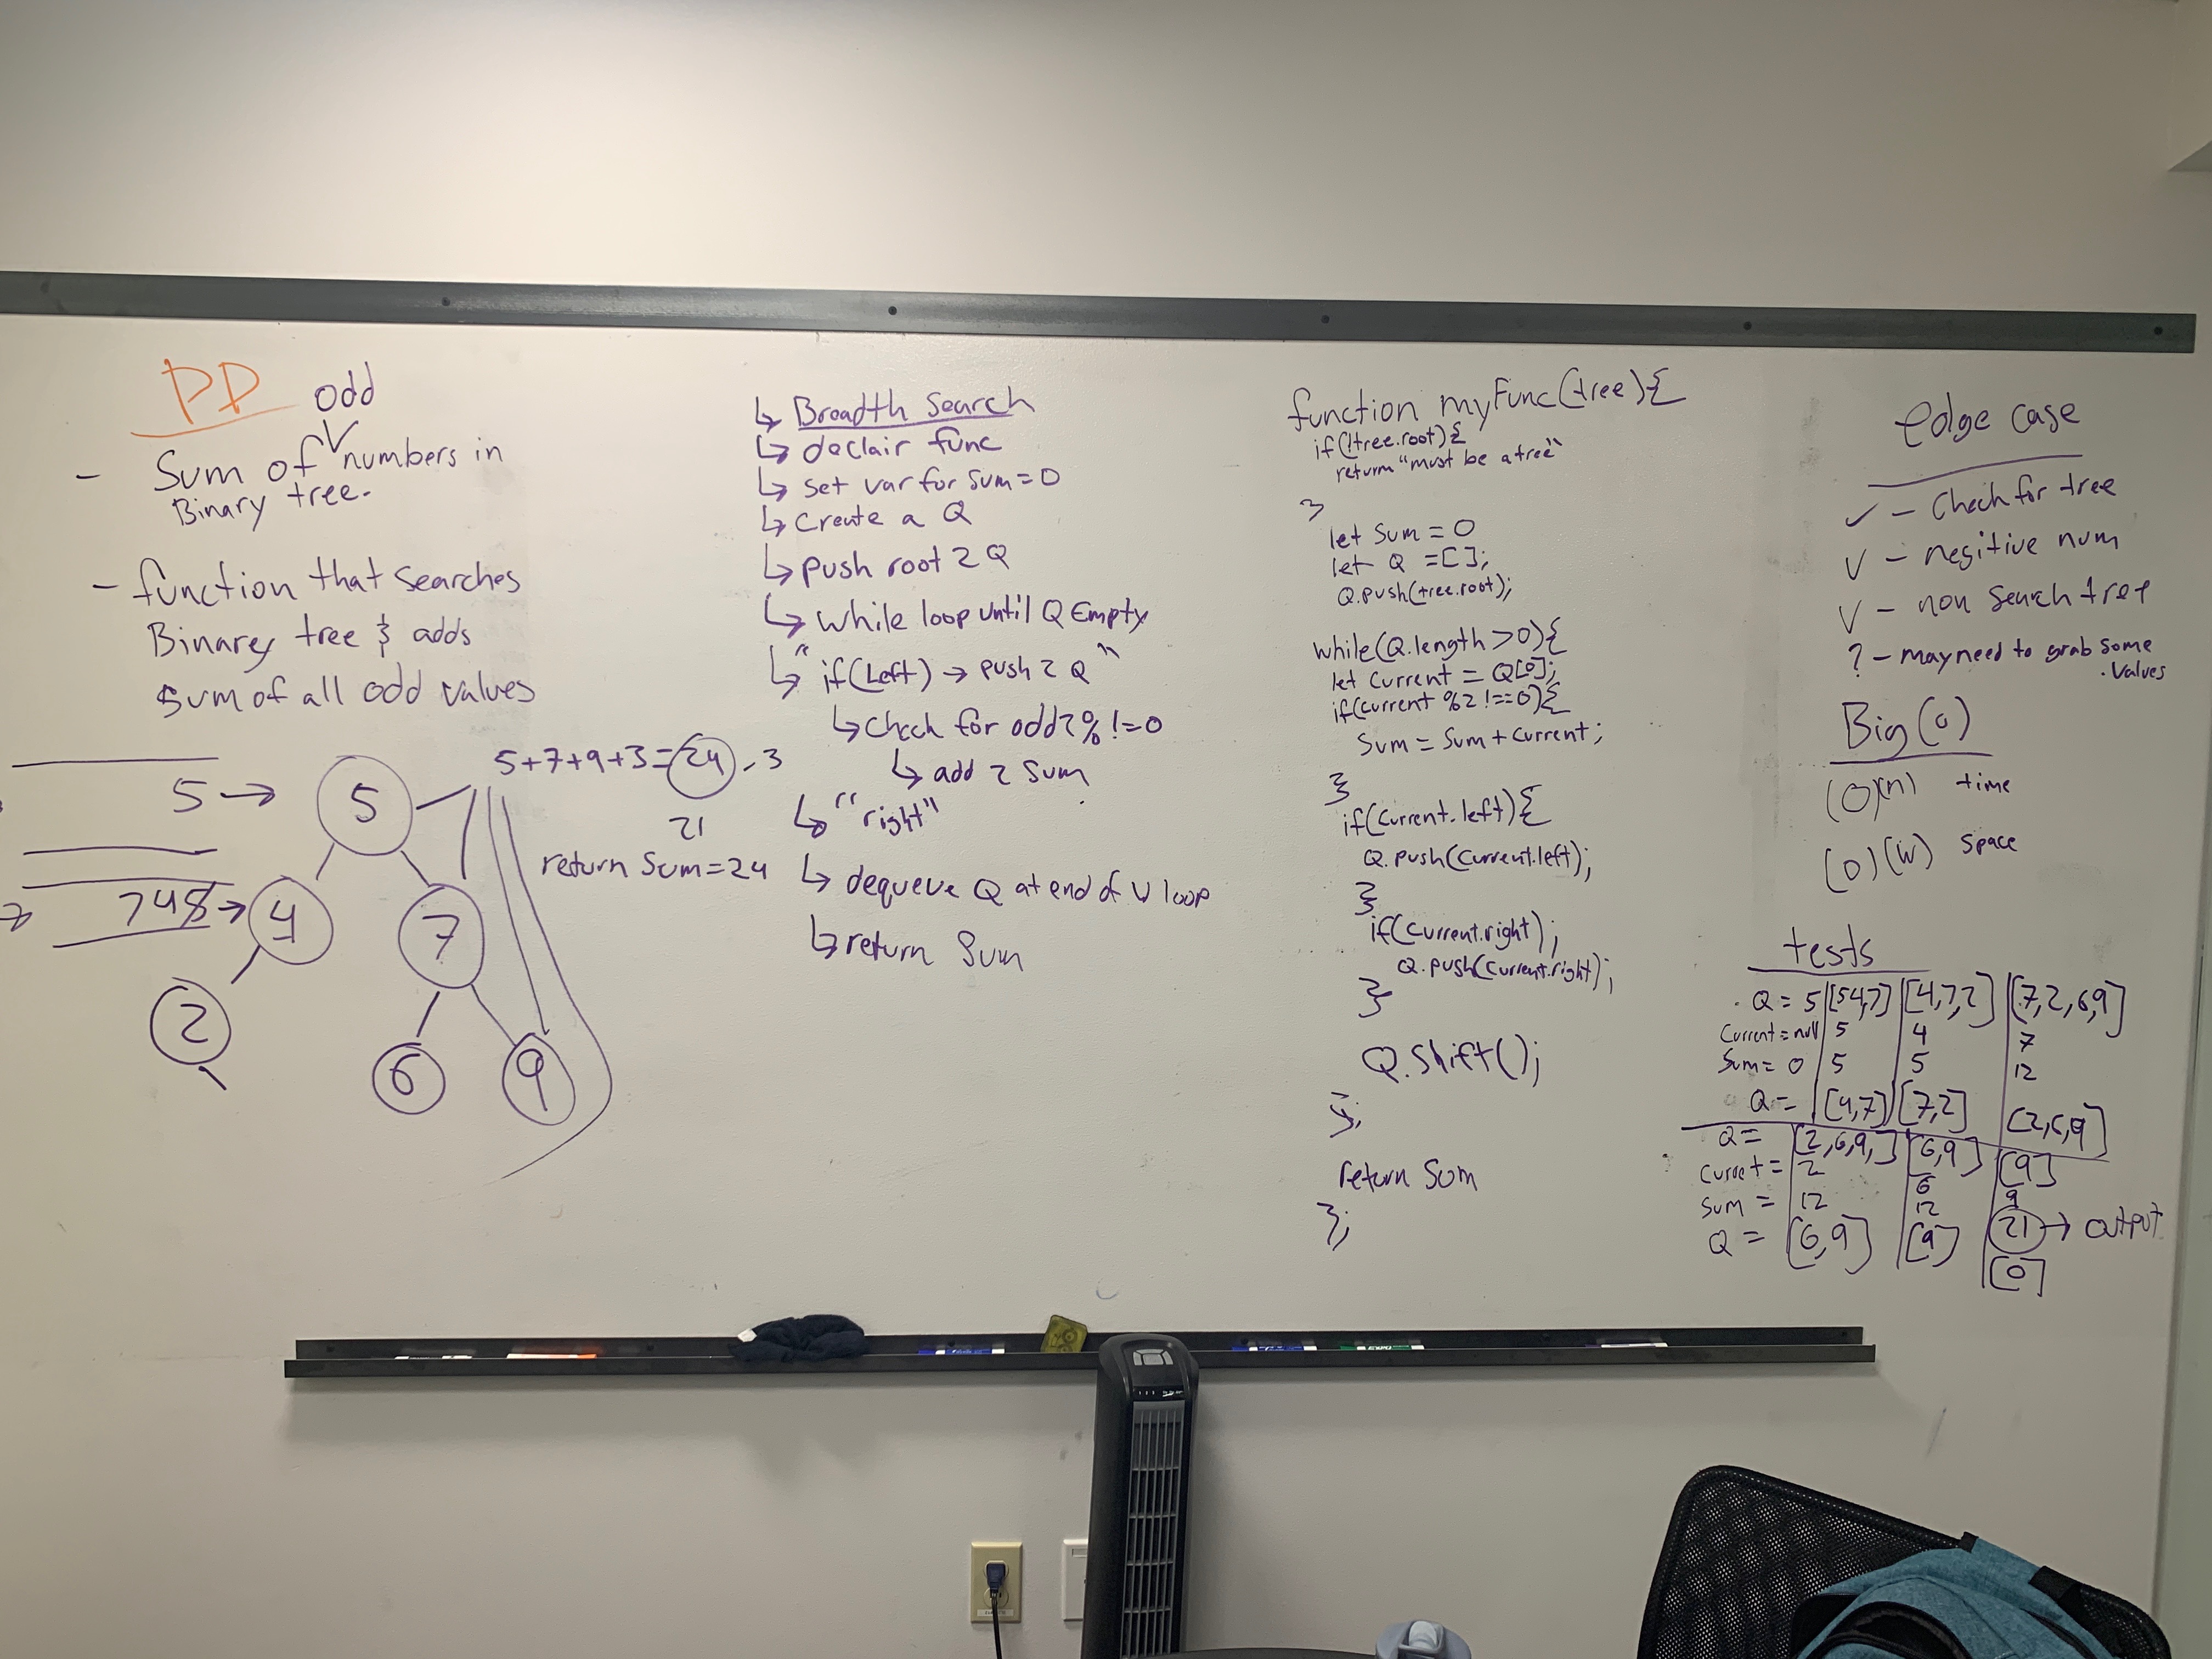 PD
odd
- Sum of numbers in
Binary tree.
- function that searches
Binarey tree & adds
Sum of all odd values
5 →
748 →
5
4
7
2
6
9
5+7+9+3=24 - 3
21
return Sum=24
↳ Breadth Search
↳ declair func
↳ set var for sum=0
↳ create a Q
↳ push root 2 Q
↳ while loop until Q Empty
↳ "if(Left) → push 2 Q"
↳ check for odd 2% !=0
↳ add 2 sum
↳ "right"
↳ dequeue Q at end of W loop
↳ return Sum
function myFunc(tree){
if(!tree.root){
return "must be a tree"
}
let sum = 0
let Q =[];
Q.push(tree.root);
while(Q.length >0){
let current = Q[0];
if(current %2 !==0){
Sum = Sum + current;
}
if(current.left){
Q.push(current.left);
}
if(current.right);
Q.push(current.right);
}
Q.shift();
};
return Sum
};
edge case
✓ - Check for tree
✓ - negitive num
✓ - non Search tree
? - may need to grab some
. values
Big(O)
(O)(n) time
(O)(W) space
tests
Q = 5 [5 4,7] [4,7,2] [7,2,6,9]
Current = null 5 4 7
Sum = 0 5 5 12
Q = [4,7] [7,2] [2,6,9]
Q = [2,6,9,] [6,9] [9]
Current = 2 6 9
Sum = 12 12 21 → output
Q = [6,9] [9] [0]